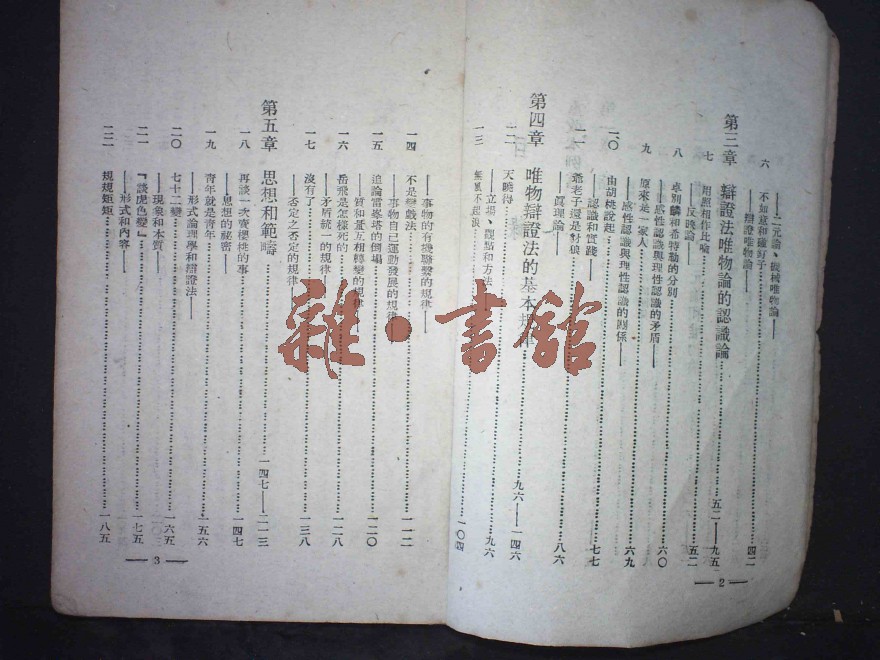 ——二元論、機械唯物論——
六 不如意和碰釘子……四二
——辯證唯物論——
第三章 辯證法唯物論的認識論……五二——九五
七 用照相作比喻……五二
——反映論——
八 卓別麟和希特勒的分別……六〇
——感性認識與理性認識的矛盾——
九 原來是一家人……六九
——感性認識與理性認識的關係——
一〇 由胡桃說起……七七
——認識和實踐——
一一 爺老子還是豺狼……八六
——眞理論——
第四章 唯物辯證法的基本規律……九六——一四六
一二 天曉得……九六
——立場、觀點和方法——
一三 無風不起浪……一〇四
— 2 —
——事物的有機聯繫的規律——
一四 不是變戲法……一一二
——事物自己運動發展的規律——
一五 追論雷峯塔的倒塌……一二〇
——質和量互相轉變的規律——
一六 岳飛是怎樣死的……一二八
——矛盾統一的規律——
一七 沒有了……一三八
——否定之否定的規律——
第五章 思想和範疇……一四七——二一三
一八 再談一次賣櫻桃的事……一四七
——思想的秘密——
一九 青年就是青年……一五六
——形式論理學和辯證法——
二〇 七十二變……一六五
——現象和本質——
二一 『談虎色變』……一七五
——形式和內容——
二二 規規矩矩……一八五
— 3 —
雜·書舘